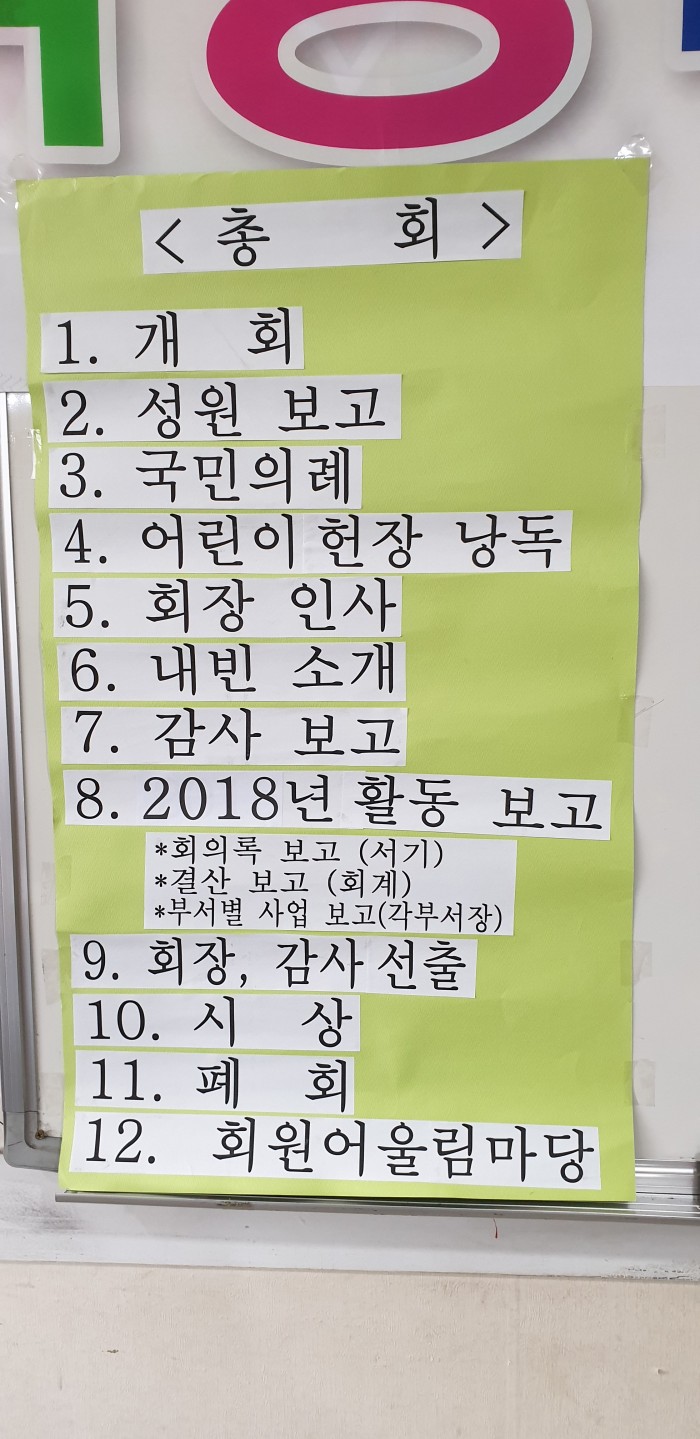 < 총 회 >
1. 개 회
2. 성원 보고
3. 국민의례
4. 어린이 헌장 낭독
5. 회장 인사
6. 내빈 소개
7. 감사 보고
8. 2018년 활동 보고
*회의록 보고 (서기)
*결산 보고 (회계)
*부서별 사업 보고(각부서장)
9. 회장, 감사 선출
10. 시 상
11. 폐 회
12. 회원어울림마당